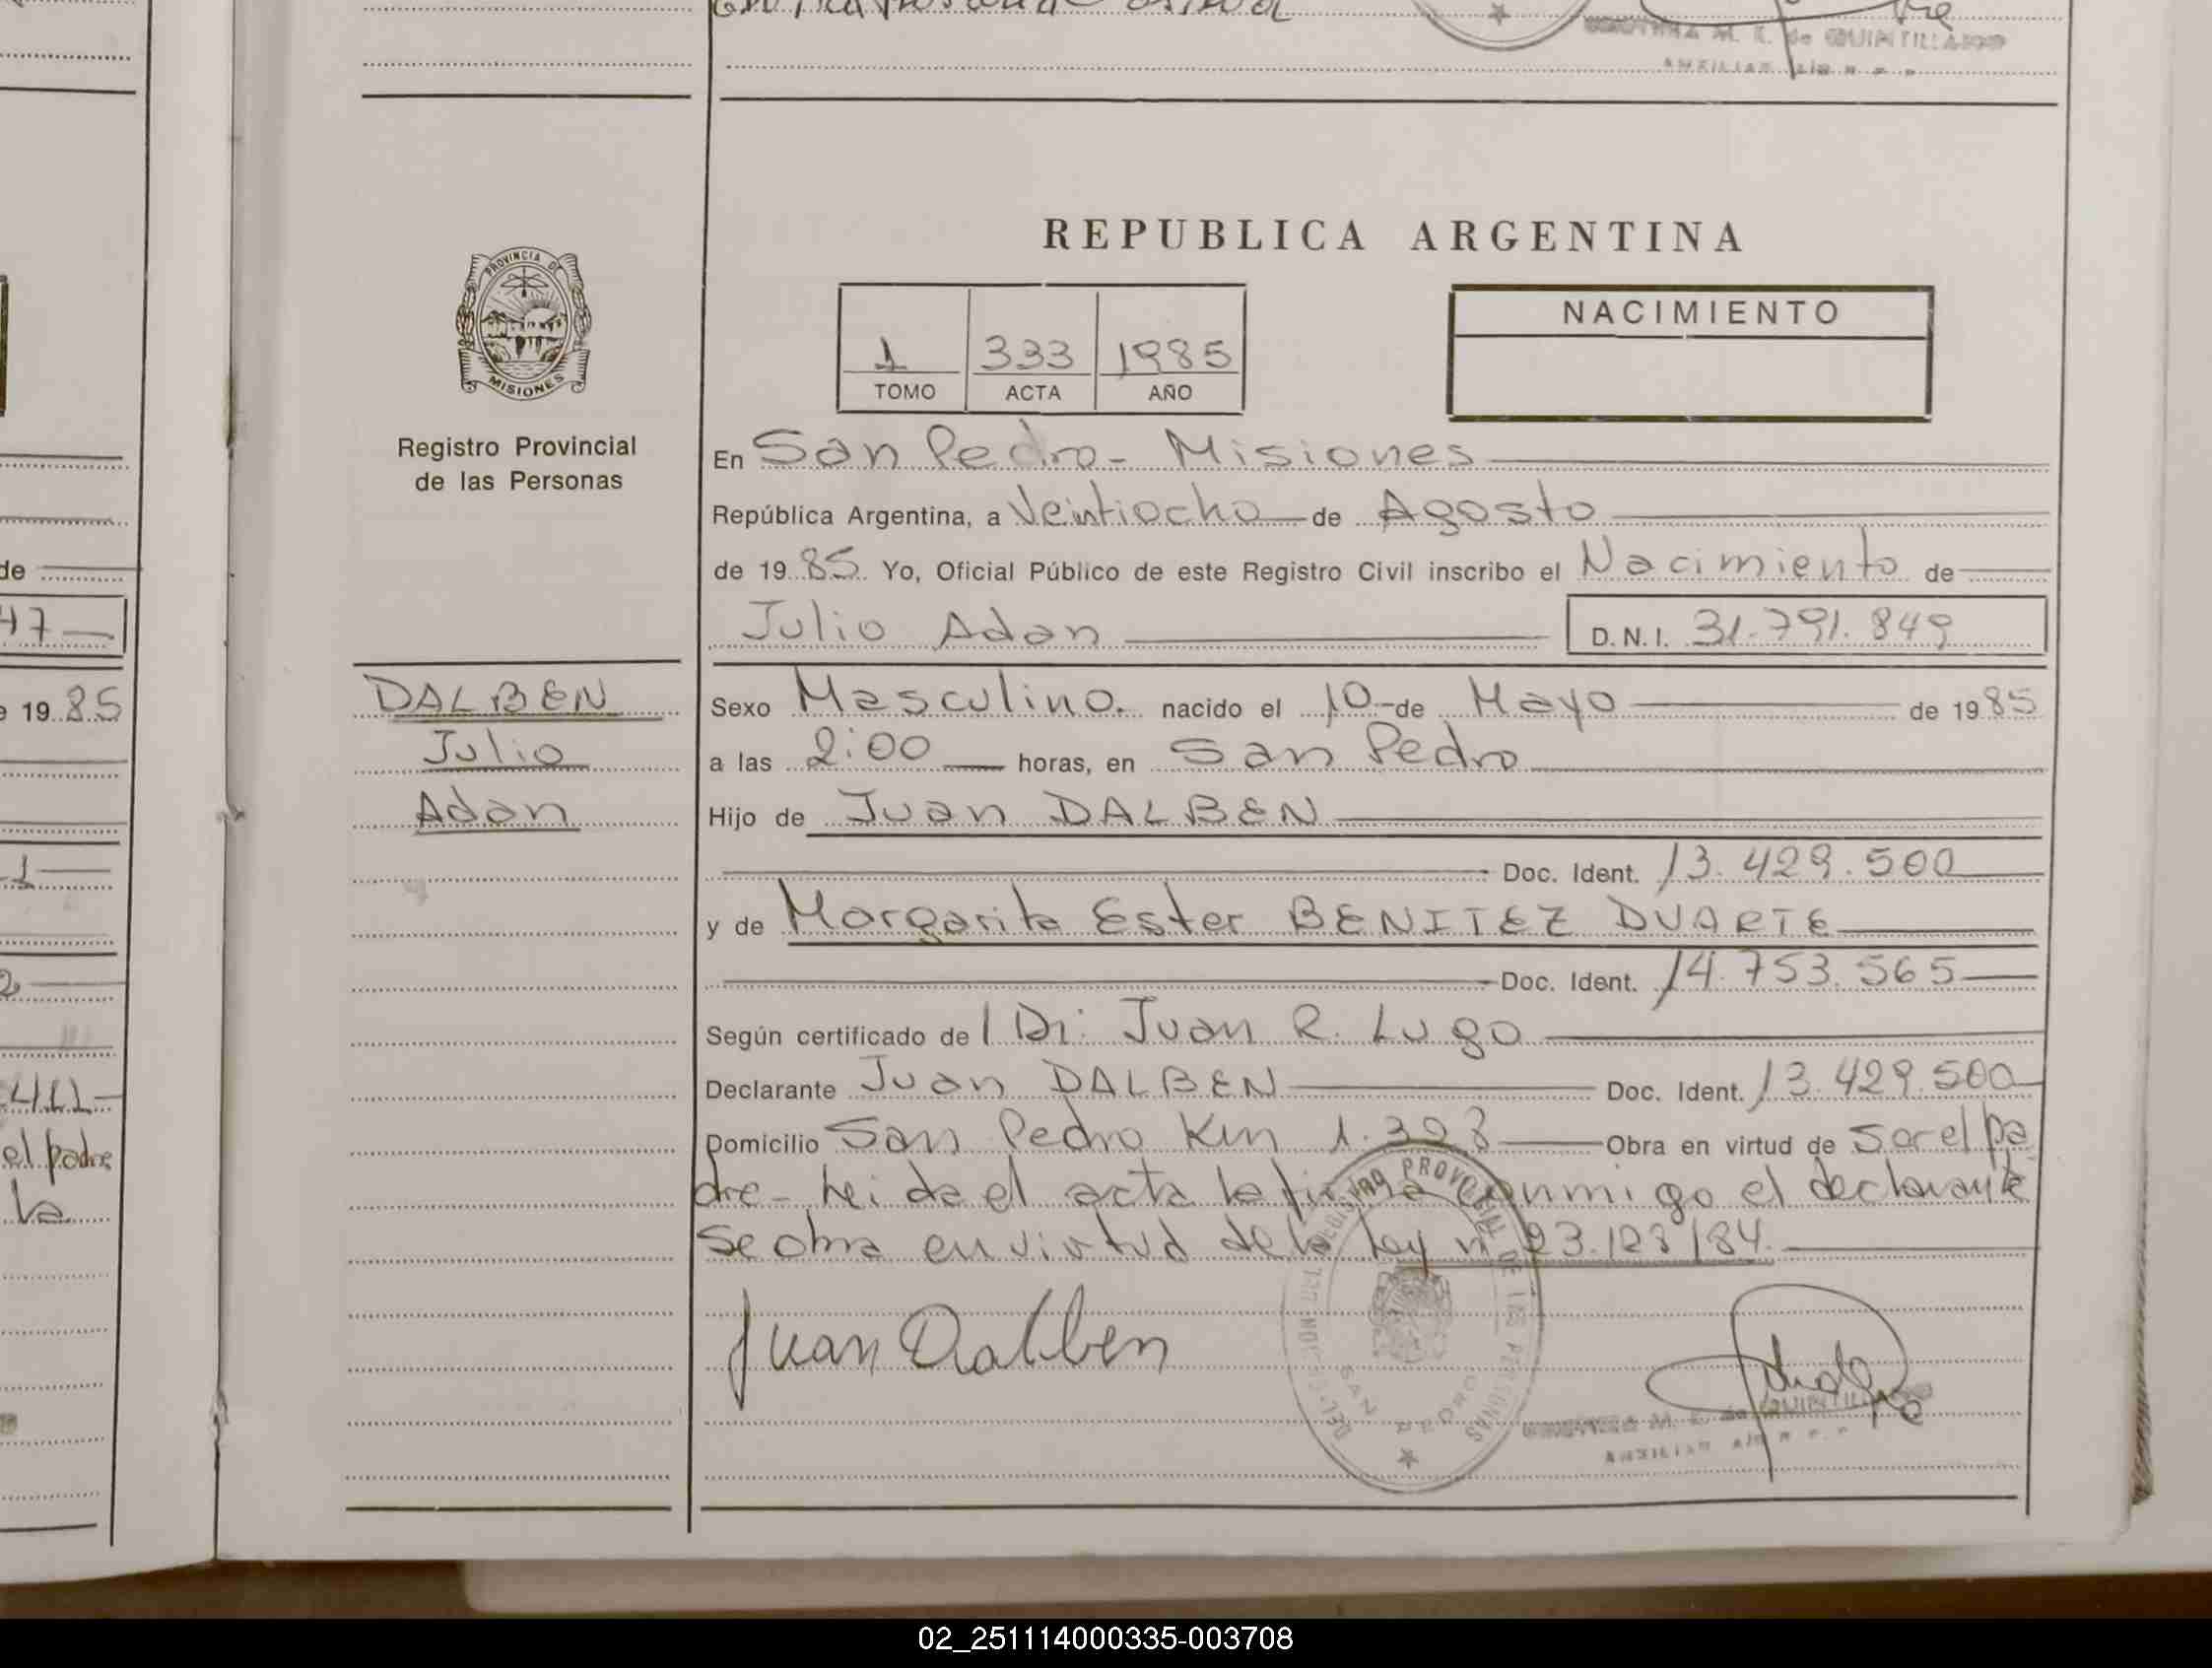 de QUINTILLANO
AUXILIAR
PROVINCIA DE
MISIONES
Registro Provincial
de las Personas
REPUBLICA ARGENTINA
1 333 1985
TOMO ACTA AÑO
NACIMIENTO
En San Pedro - Misiones
República Argentina, a Veintiocho de Agosto
de 1985 Yo, Oficial Público de este Registro Civil inscribo el Nacimiento de
Julio Adan D.N.I. 31.791.849
DALBEN
Julio
Adan
Sexo Masculino. nacido el 10 de Mayo de 1985
a las 2:00 horas, en San Pedro
Hijo de Juan DALBEN
Doc. Ident. 13.429.500
y de Margarita Ester BENITEZ DUARTE
Doc. Ident. 14.753.565
Según certificado de Dr: Juan R. Lugo
Declarante Juan DALBEN Doc. Ident. 13.429.500
Domicilio San Pedro Km 1.323 Obra en virtud de ser el pa
dre - Leida el acta la firma conmigo el declarante
Se obra en virtud de la Ley nº 23.123/84.
Juan Dalben
REGISTRO PROVINCIAL DE LAS PERSONAS
SAN PEDRO
M. E. de QUINTILLANO
AUXILIAR
de
47
e 1985
1
2
411
el padre
la
02_251114000335-003708